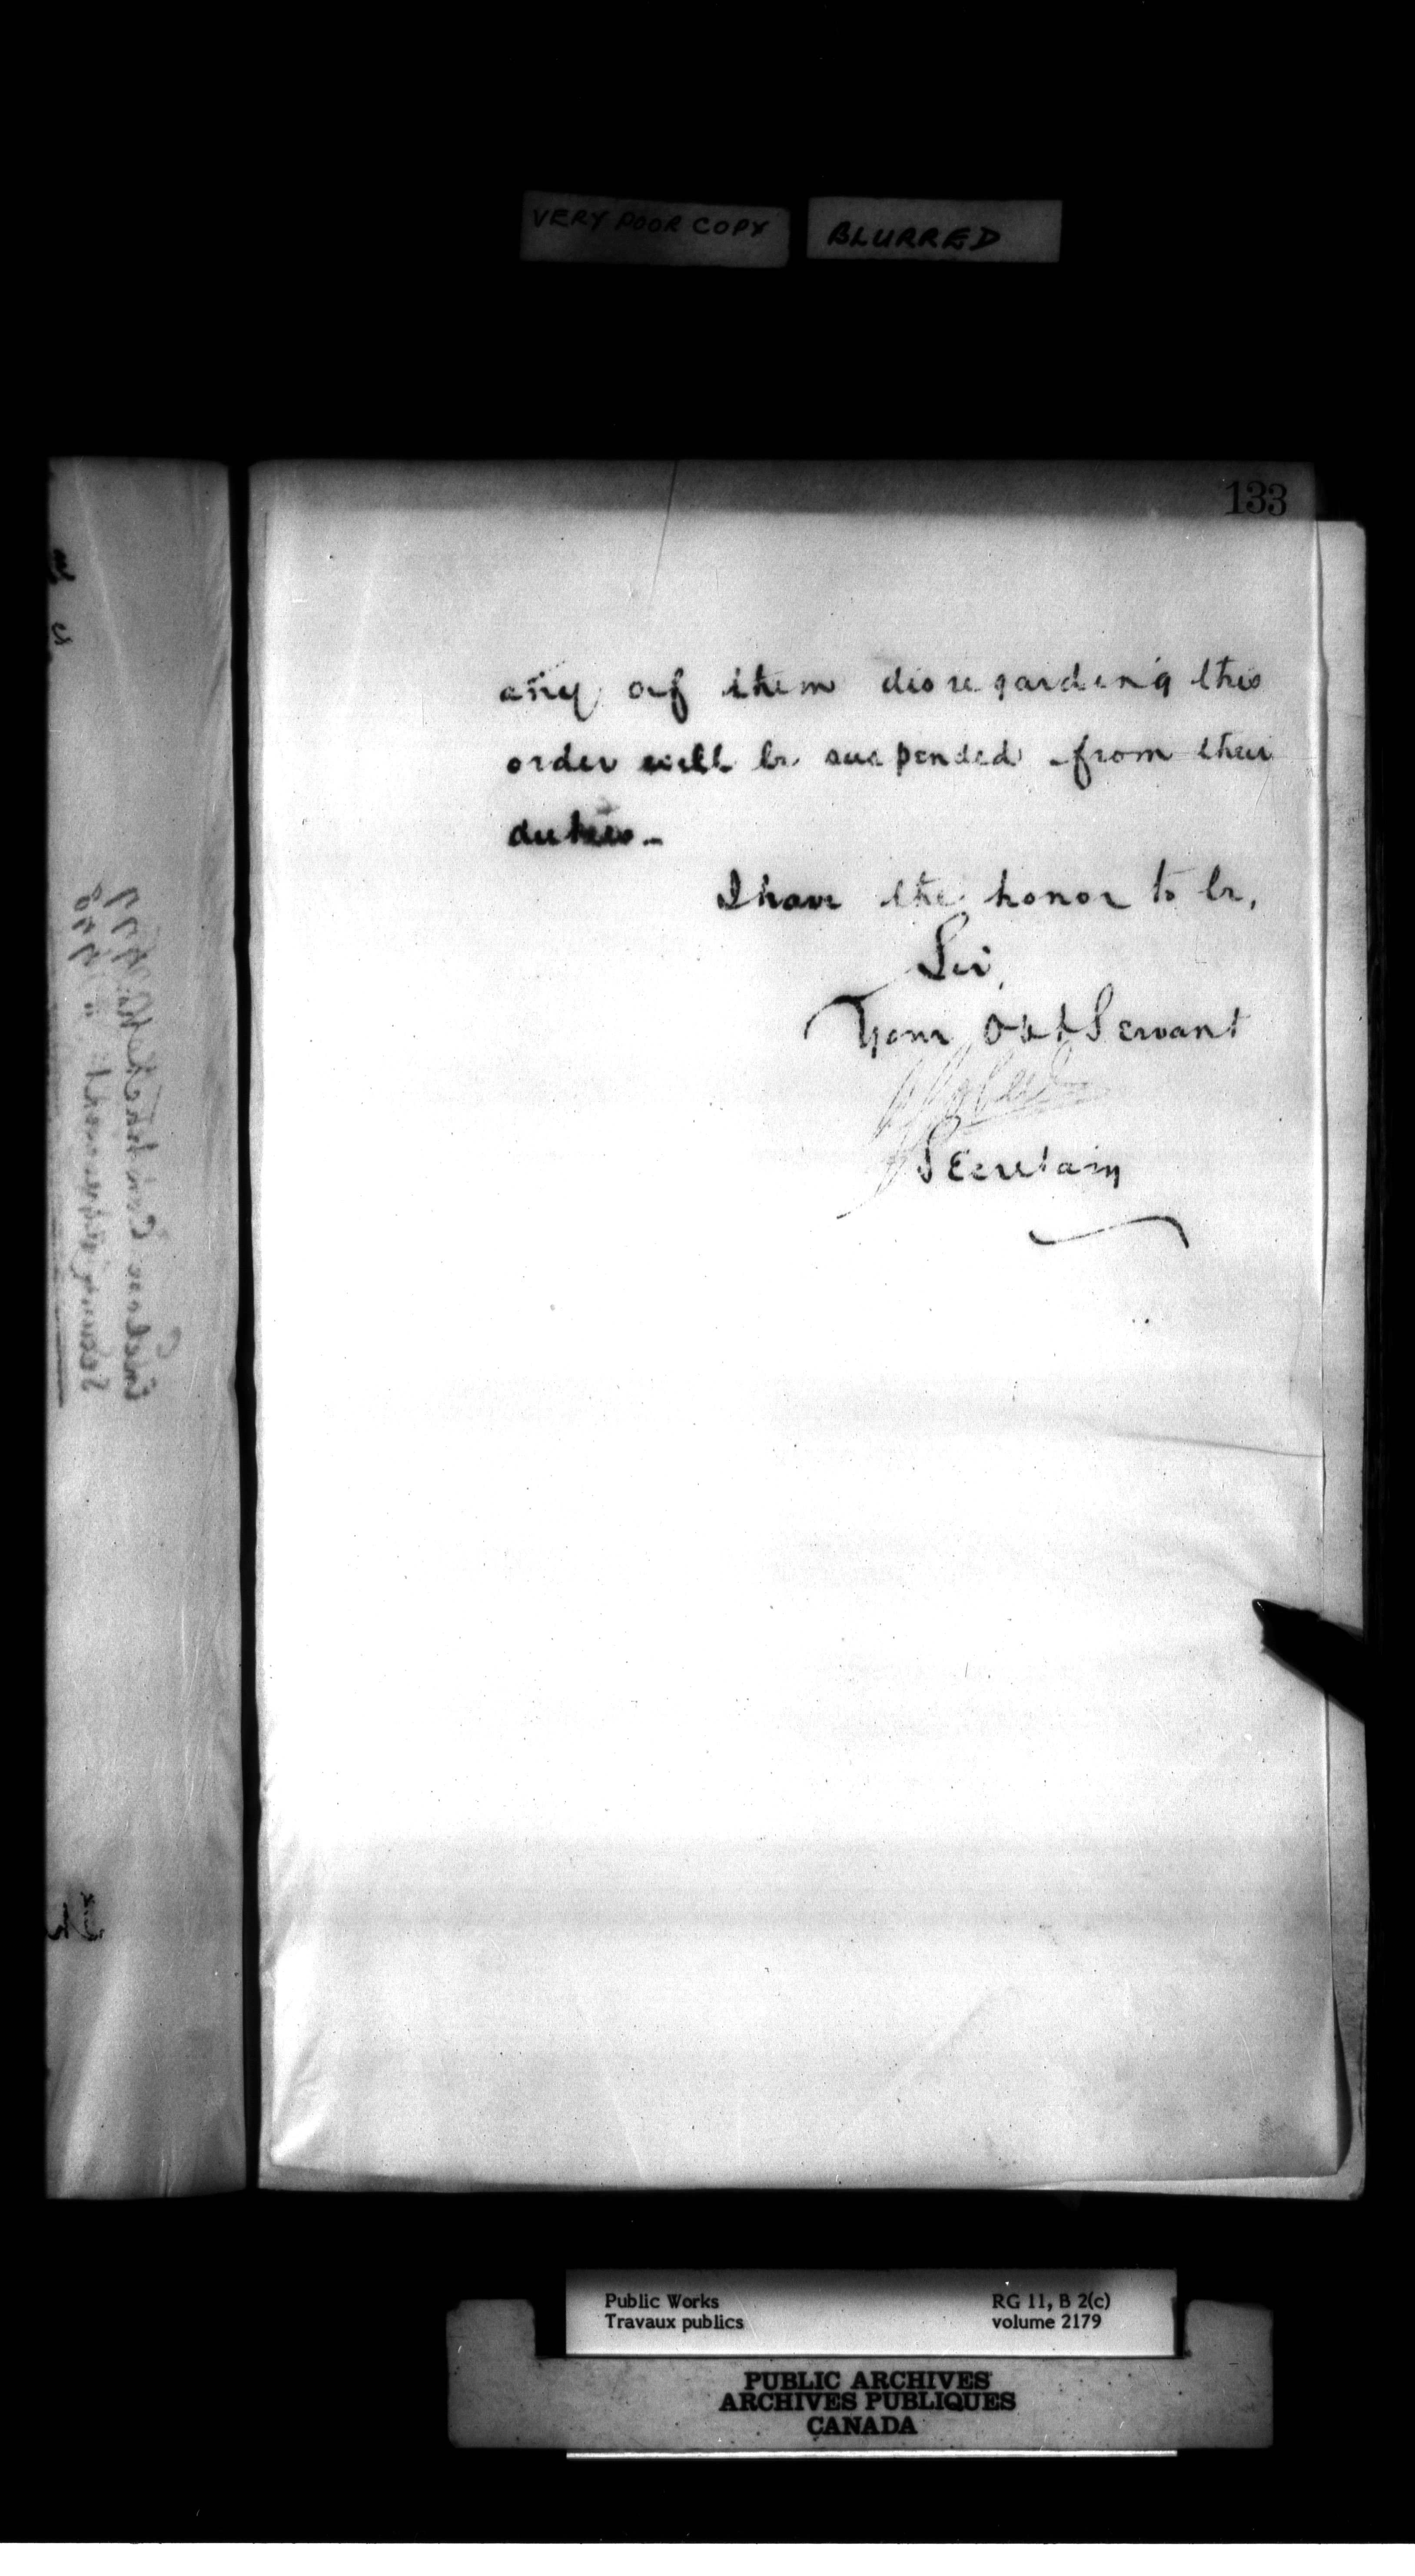 VERY POOR COPY
BLURRED
133
any of them disregarding this
order will be suspended from their
duties _
I have the honor to be,
Sir,
Your Obt Servant
Secretary
Public Works
Travaux publics
RG 11, B 2(c)
volume 2179
PUBLIC ARCHIVES
ARCHIVES PUBLIQUES
CANADA